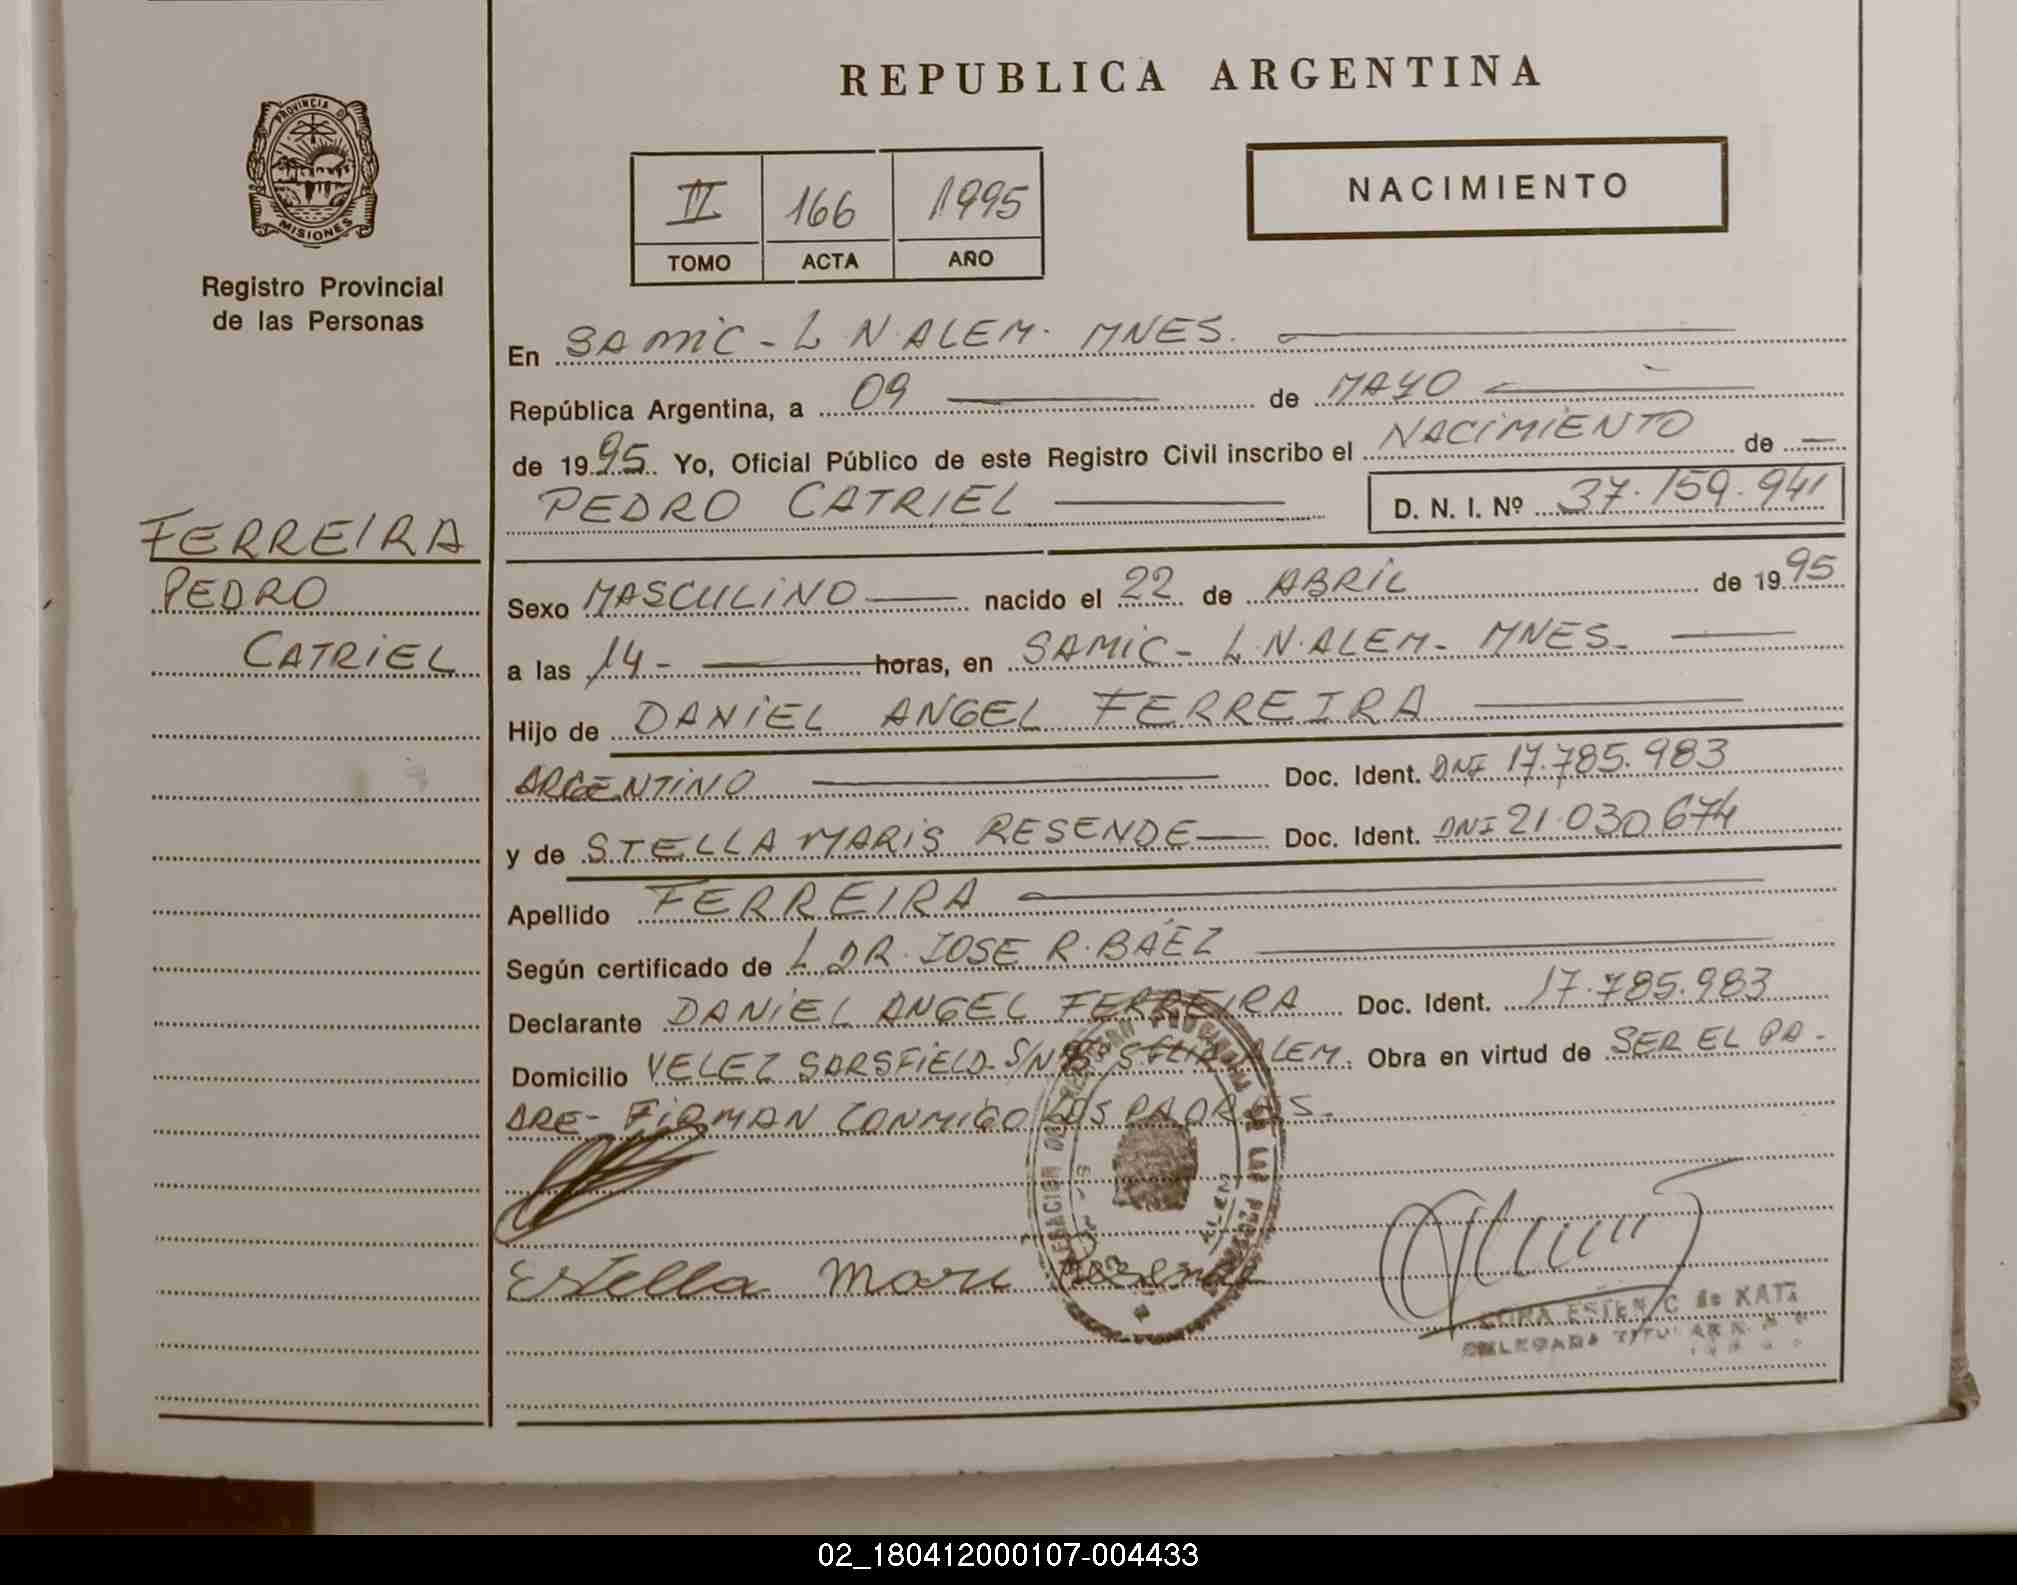 REPUBLICA ARGENTINA
PROVINCIA DE
MISIONES
Registro Provincial
de las Personas
II 166 1995
TOMO ACTA AÑO
NACIMIENTO
En SAMIC - L N. ALEM. MNES.
República Argentina, a 09 de MAYO
de 1995 Yo, Oficial Público de este Registro Civil inscribo el NACIMIENTO de
PEDRO CATRIEL D. N. I. Nº 37.159.941
FERREIRA
PEDRO
CATRIEL
Sexo MASCULINO nacido el 22 de ABRIL de 1995
a las 14 - horas, en SAMIC - L.N. ALEM - MNES -
Hijo de DANIEL ANGEL FERREIRA
ARGENTINO Doc. Ident. DNI 17.785.983
y de STELLA MARIS RESENDE Doc. Ident. DNI 21.030.674
Apellido FERREIRA
Según certificado de L DR. JOSE R. BAEZ
Declarante DANIEL ANGEL FERREIRA Doc. Ident. 17.785.983
Domicilio VELEZ SARSFIELD - S/N ALEM. Obra en virtud de SER EL PA-
DRE - FIRMAN CONMIGO LOS PADRES -
Estella Maris Resende
de KATZ
DELEGADA TITULAR
02_180412000107-004433